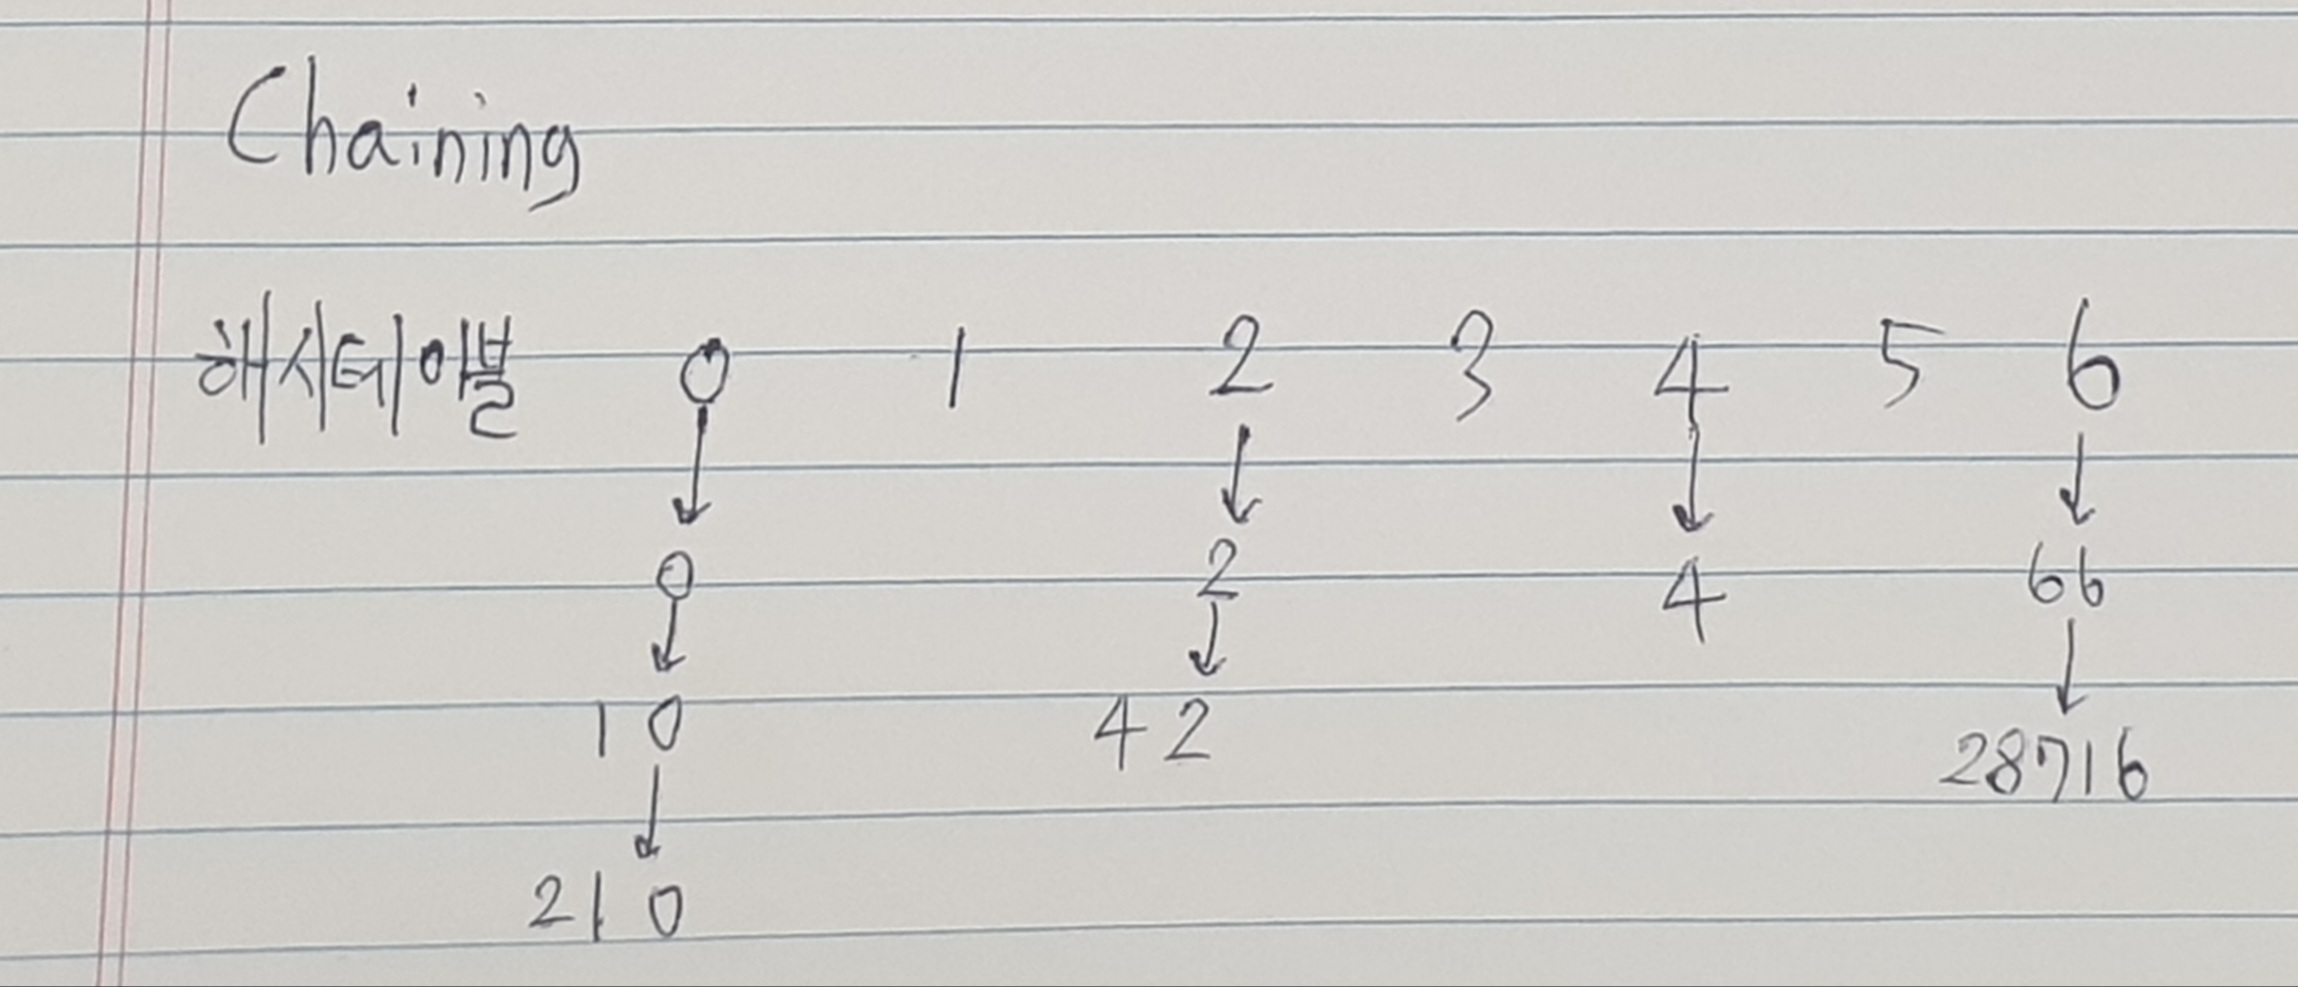 Chaining
해시테이블 0 1 2 3 4 5 6
0 2 4 66
10 42 28716
210